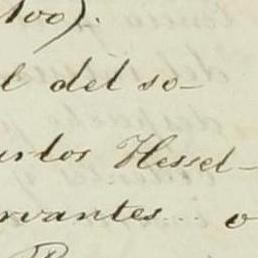 100).
l del so-
arlos Hessel-
rvantes... o